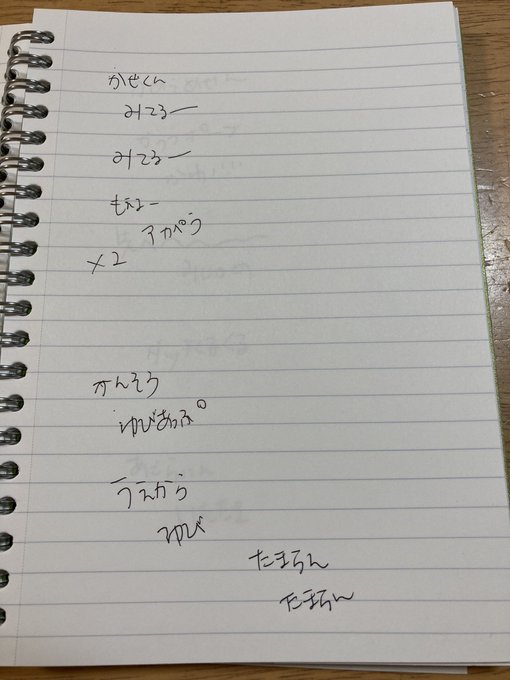 かぜくん
みてるー
みてるー
もえー
アカペラ
×2
かんそう
ゆびあっぷ
うえから
ゆび
たまらん
たまらん